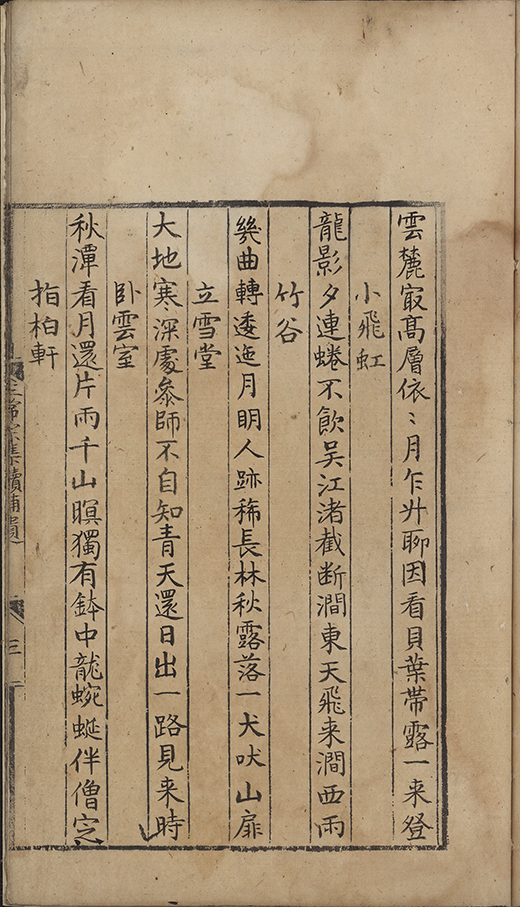 雲麓㝡髙層依〻月乍升聊因看貝葉帶露一来登
小飛虹
龍影夕連蜷不飲吴江渚截断澗東天飛来澗西雨
竹谷
幾曲轉逶迤月明人跡稀長林秋露落一犬吠山扉
立雪堂
大地寒深處叅師不自知青天還日出一路見来時
卧雲室
秋潭看月還片雨千山暝獨有鉢中龍蜿蜒伴僧㝎
指柏軒
集續補遺
三